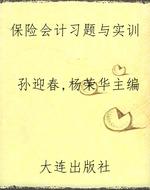 保险会计习题与实训
孙迎春，杨荣华主编
大连出版社